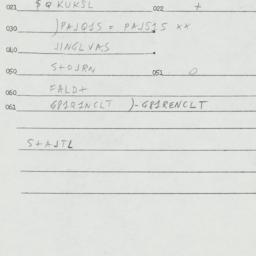 021 $ Q KUKSL 022 +
030 )PAJQ1S = PAJ515 xx
040 JINGLVAS
050 S+OJRN 051 0
060 FALD+
061 G81Q1NCLT )-G81RENCLT
S+AJTL